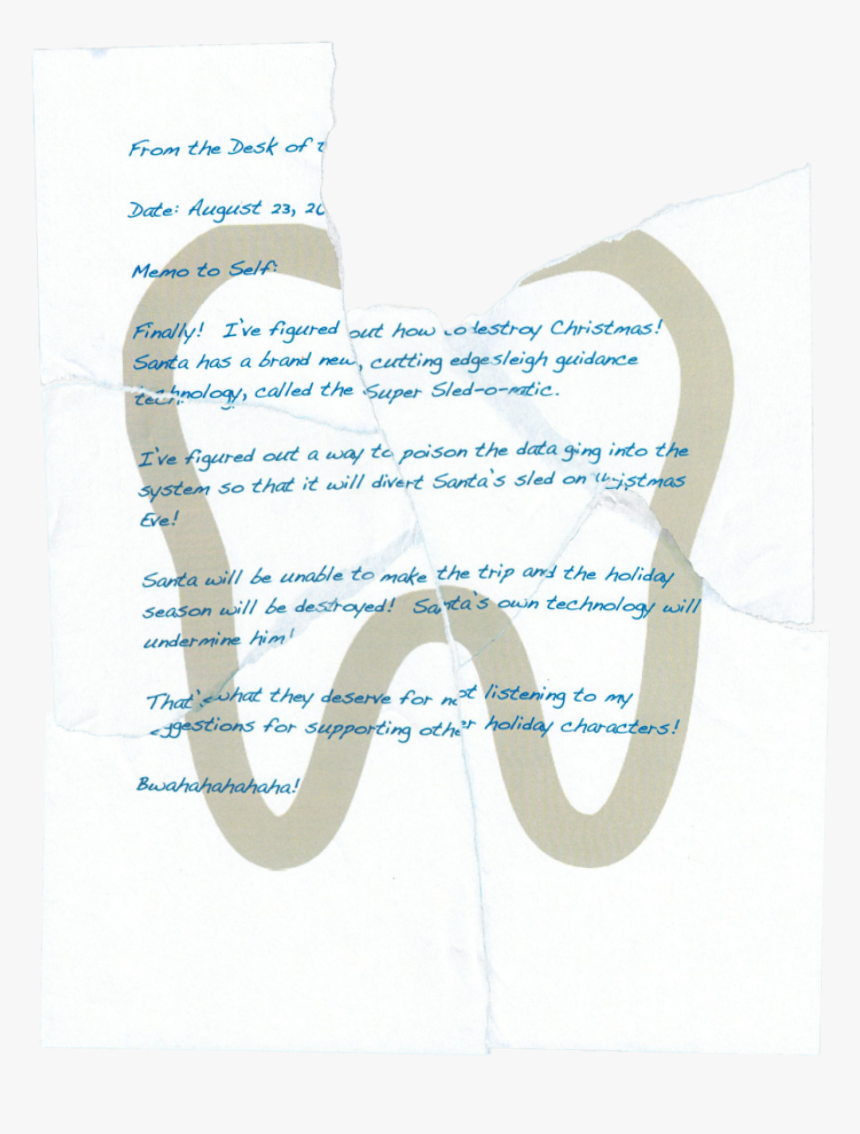 From the Desk of t
Date: August 23, 20
Memo to Self:
Finally! I've figured out how to destroy Christmas!
Santa has a brand new, cutting edge sleigh guidance
technology, called the Super Sled-o-matic.
I've figured out a way to poison the data ging into the
system so that it will divert Santa's sled on Christmas
Eve!
Santa will be unable to make the trip and the holiday
season will be destroyed! Santa's own technology will
undermine him!
That's what they deserve for not listening to my
ggestions for supporting other holiday characters!
Bwahahahahaha!